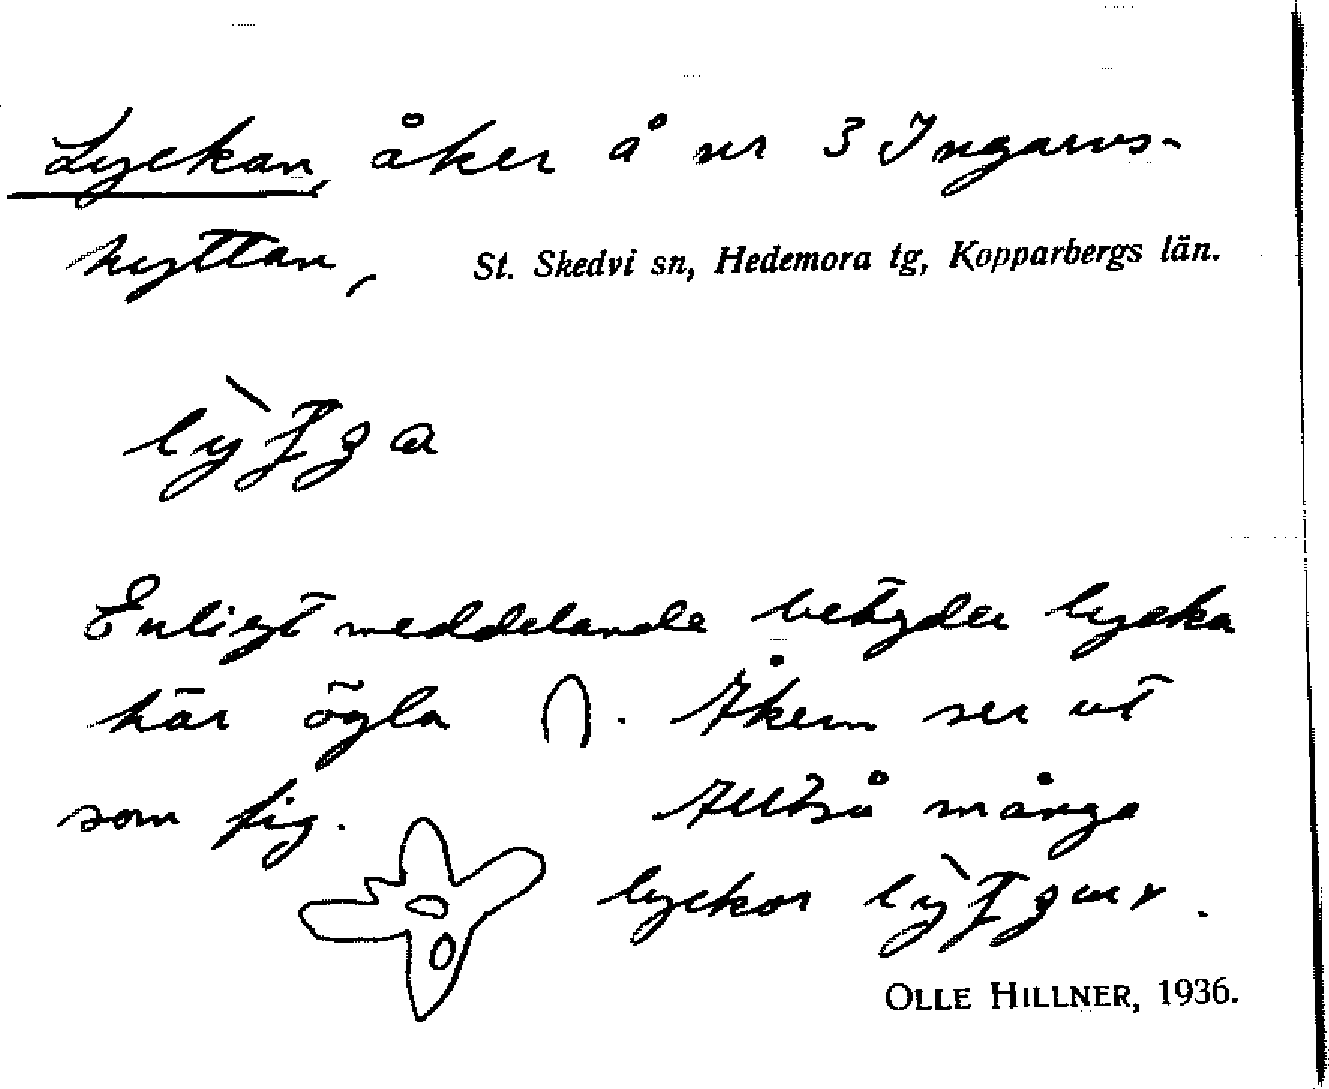 Lyckan, åker å nr 3 Ingarvs-
hyttan, St. Skedvi sn, Hedemora tg, Kopparbergs län.
Enligt meddelande betyder lycka
här ögla ∩. Åkern ser ut
som fig. Alltså många
lyckor
OLLE HILLNER, 1936.